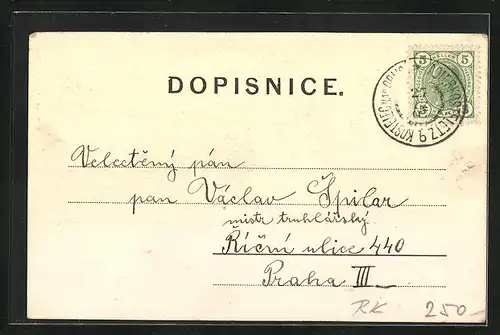 5 5
DOPISNICE.
Velectěný pán
pan Václav Špilar
mistr truhlářský
Říční ulice 440
Praha III
RK 250.-